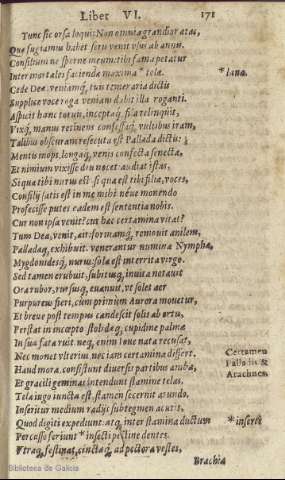 Liber VI. 171
Tunc sic orsa loqui: Non omnia grandior ætas,
Quæ fugiamus habet: seris venit vsus ab annis.
Consilium ne sperne meum: tibi fama petatur
Inter mortales faciendæ maxima * telæ. * lanæ.
Cede Deæ. veniamq́; tuis temeraria dictis
Supplice voce roga veniam dabit illa roganti.
Aspicit hanc toruis, inceptaq́; fila relinquit,
Vixq́; manus retinens confessaq́; vultibus iram,
Talibus obscuram resecuta est Pallada dictis:
Mentis inops, longaq́; venis confecta senecta,
Et nimium vixisse diu nocet: audiat istas,
Siqua tibi nurus est, si qua est tibi filia, voces,
Consilij satis est in me mihi. néue monendo
Profecisse putes eadem est sententia nobis.
Cur non ipsa venit? cur hæc certamina vitat?
Tum Dea, venit, ait: formamq́; remouit anilem,
Palladaq́; exhibuit. venerantur numina Nymphæ,
Mygdonidesq́; nurus: sola est interrita virgo.
Sed tamen erubuit, subitusq́; inuita notauit
Ora rubor, rursusq́; euanuit, vt solet aer
Purpureus fieri, cùm primùm Aurora mouetur,
Et breue post tempus candescit solis ab ortu,
Perstat in incepto stolidæq́; cupidine palmæ
In sua fata ruit. neq; enim Ioue nata recusat,
Nec monet vlterius. nec iam certamina differt. Certamen
Palladis &
Arachnes
Haud mora. consistunt diuersis partibus ambæ,
Et gracili geminas intendunt stamine telas.
Tela iugo iuncta est. stamen secernit arundo.
Inseritur medium radijs subtegmen acutis.
Quod digiti expediunt. atq; inter stamina ductum * insertæ
Percusso feriunt * insecti pectine dentes.
Vtraq́; festinat, cinctæq́; ad pectora vestes,
Brachia
Biblioteca de Galicia